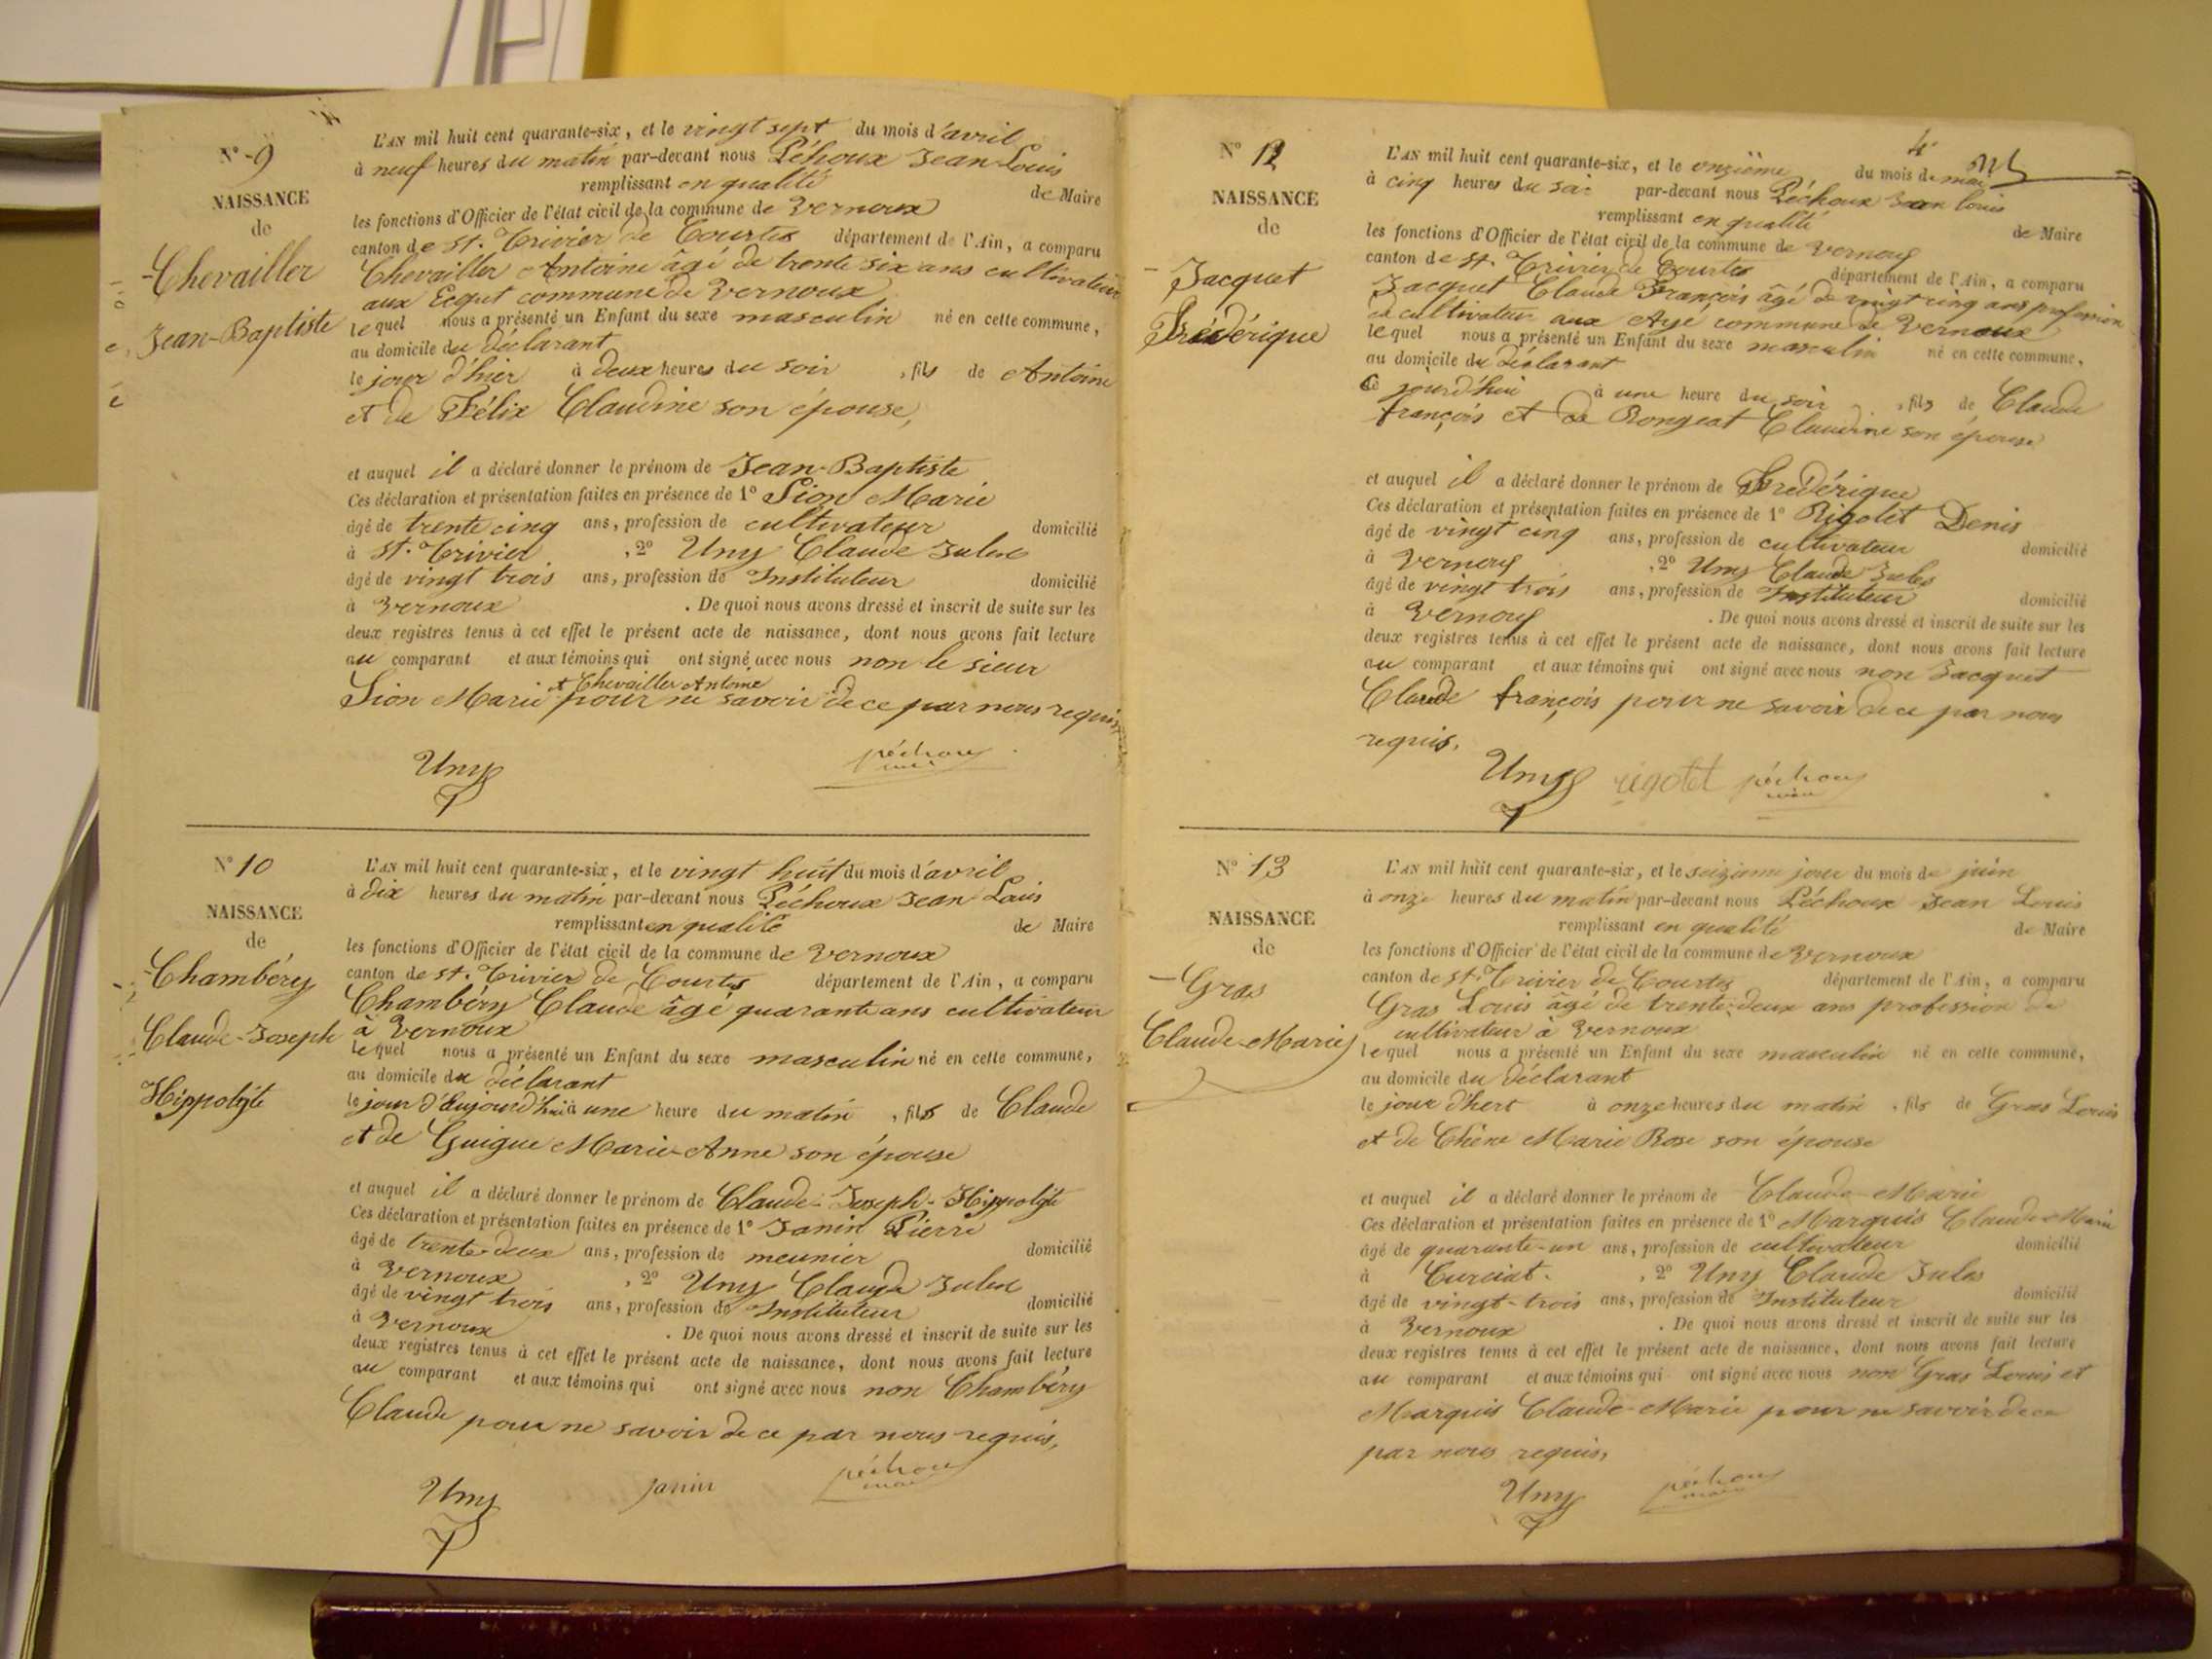 N° 9
NAISSANCE
de
Chevailler
Jean-Baptiste
L'AN mil huit cent quarante-six, et le vingt sept du mois d'avril
à neuf heures du matin par-devant nous Péchoux Jean Louis
remplissant en qualité de Maire
les fonctions d'Officier de l'état civil de la commune de Vernoux
canton de St. Trivier de Courtes département de l'Ain, a comparu
Chevailler Antoine âgé de trente six ans cultivateur
aux Ecqut commune de Vernoux
lequel nous a présenté un Enfant du sexe masculin né en cette commune,
au domicile du déclarant
le jour d'hier à deux heures du soir, fils de Antoine
et de Félix Claudine son épouse,
et auquel il a déclaré donner le prénom de Jean-Baptiste
Ces déclaration et présentation faites en présence de 1° Sion Marie
âgé de trente cinq ans, profession de cultivateur domicilié
à St. Trivier, 2° Uny Claude Jules
âgé de vingt trois ans, profession de Instituteur domicilié
à Vernoux. De quoi nous avons dressé et inscrit de suite sur les
deux registres tenus à cet effet le présent acte de naissance, dont nous avons fait lecture
au comparant et aux témoins qui ont signé avec nous non le sieur
et Chevailler Antoine
Sion Marie pour ne savoir de ce par nous requis
Uny péchoux
maire
N° 10
NAISSANCE
de
Chambéry
Claude-Joseph
Hippolyte
L'AN mil huit cent quarante-six, et le vingt huit du mois d'avril
à dix heures du matin par-devant nous Péchoux Jean Louis
remplissant en qualité de Maire
les fonctions d'Officier de l'état civil de la commune de Vernoux
canton de St. Trivier de Courtes département de l'Ain, a comparu
Chambéry Claude âgé quarante ans cultivateur
à Vernoux
lequel nous a présenté un Enfant du sexe masculin né en cette commune,
au domicile du déclarant
le jour d'aujourd'hui à une heure du matin, fils de Claude
et de Guigue Marie-Anne son épouse
et auquel il a déclaré donner le prénom de Claude-Joseph-Hippolyte
Ces déclaration et présentation faites en présence de 1° Janin Pierre
âgé de trente-deux ans, profession de meunier domicilié
à Vernoux, 2° Uny Claude Jules
âgé de vingt trois ans, profession de Instituteur domicilié
à Vernoux. De quoi nous avons dressé et inscrit de suite sur les
deux registres tenus à cet effet le présent acte de naissance, dont nous avons fait lecture
au comparant et aux témoins qui ont signé avec nous non Chambéry
Claude pour ne savoir de ce par nous requis,
Uny Janin péchoux
maire
4
N° 12
NAISSANCE
de
Jacquet
Frédérique
L'AN mil huit cent quarante-six, et le onzième du mois de mai
à cinq heures du soir par-devant nous Péchoux Jean Louis
remplissant en qualité de Maire
les fonctions d'Officier de l'état civil de la commune de Vernoux
canton de St. Trivier de Courtes département de l'Ain, a comparu
Jacquet Claude François âgé de vingt cinq ans profession
de cultivateur aux commune de Vernoux
lequel nous a présenté un Enfant du sexe masculin né en cette commune,
au domicile du déclarant
ce jourd'hui à une heure du soir, fils de Claude
françois et de Rongeat Claudine son épouse
et auquel il a déclaré donner le prénom de Frédérique
Ces déclaration et présentation faites en présence de 1° Rigolet Denis
âgé de vingt cinq ans, profession de cultivateur domicilié
à Vernoux, 2° Uny Claude Jules
âgé de vingt trois ans, profession de Instituteur domicilié
à Vernoux. De quoi nous avons dressé et inscrit de suite sur les
deux registres tenus à cet effet le présent acte de naissance, dont nous avons fait lecture
au comparant et aux témoins qui ont signé avec nous non Jacquet
Claude françois pour ne savoir de ce par nous
requis,
Uny rigolet péchoux
maire
N° 13
NAISSANCE
de
Gras
Claude-Marie
L'AN mil huit cent quarante-six, et le seizième jour du mois de juin
à onze heures du matin par-devant nous Péchoux Jean Louis
remplissant en qualité de Maire
les fonctions d'Officier de l'état civil de la commune de Vernoux
canton de St. Trivier de Courtes département de l'Ain, a comparu
Gras Louis âgé de trente-deux ans profession de
cultivateur à Vernoux
lequel nous a présenté un Enfant du sexe masculin né en cette commune,
au domicile du déclarant
le jour d'hert à onze heures du matin, fils de Gras Louis
et de Chêne Marie Rose son épouse
et auquel il a déclaré donner le prénom de Claude-Marie
Ces déclaration et présentation faites en présence de 1° Marquis Claude-Marie
âgé de quarante-un ans, profession de cultivateur domicilié
à Curciat, 2° Uny Claude Jules
âgé de vingt-trois ans, profession de Instituteur domicilié
à Vernoux. De quoi nous avons dressé et inscrit de suite sur les
deux registres tenus à cet effet le présent acte de naissance, dont nous avons fait lecture
au comparant et aux témoins qui ont signé avec nous non Gras Louis et
Marquis Claude-Marie pour ne savoir de ce
par nous requis,
Uny péchoux
maire